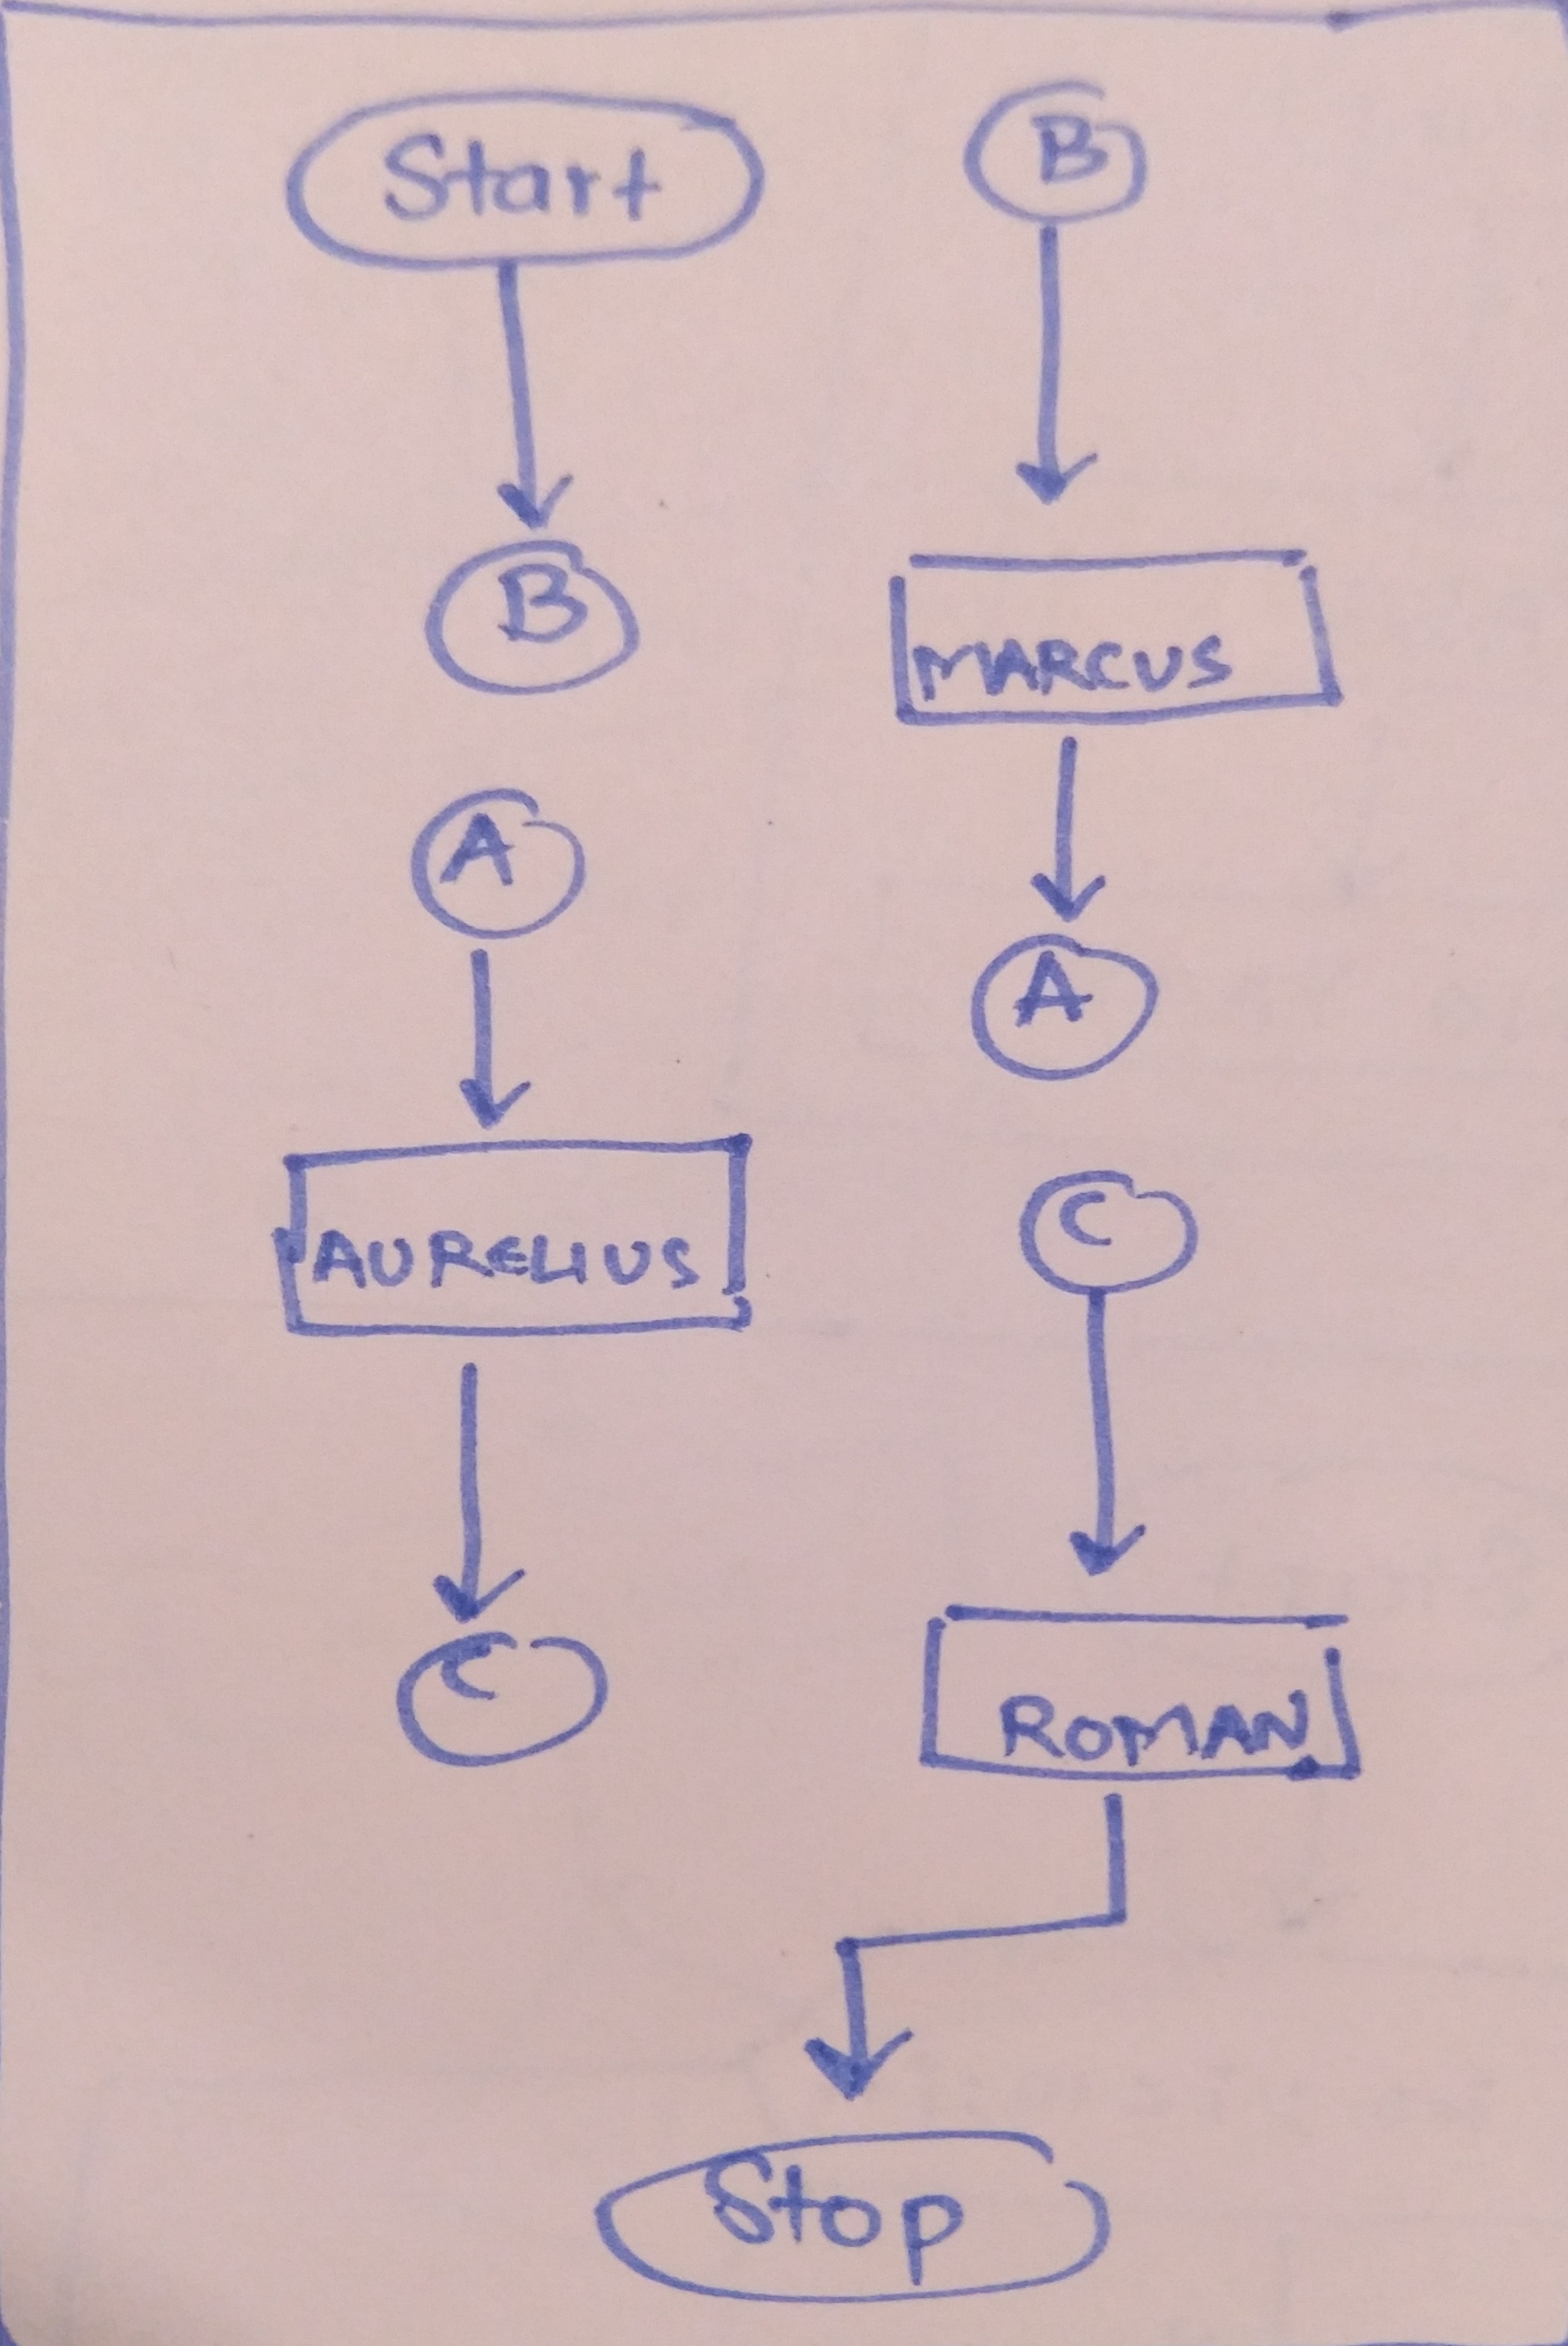 Start
B
A
AURELIUS
C
B
MARCUS
A
C
ROMAN
Stop